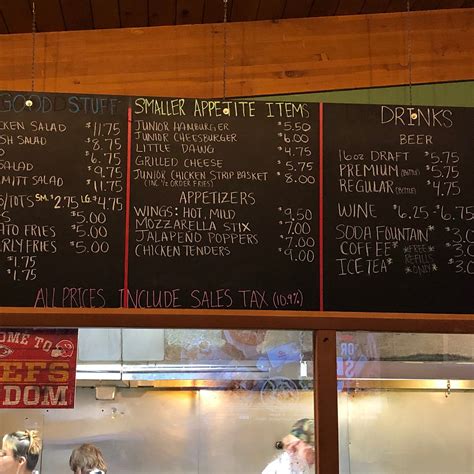 GOOD STUFF
CKEN SALAD $11.75
SH SALAD $8.75
$6.75
SALAD $9.75
MITT SALAD $11.75
/TOTS SM. $2.75 LG. $4.75
S $5.00
ATO FRIES $5.00
RLY FRIES $5.00
$1.75
$1.75
SMALLER APPETITE ITEMS
JUNIOR HAMBURGER $5.50
JUNIOR CHEESBURGER $6.00
LITTLE DAWG $4.75
GRILLED CHEESE $5.75
JUNIOR CHICKEN STRIP BASKET $8.00
(INC ½ ORDER FRIES)
APPETIZERS
WINGS: HOT, MILD $9.50
MOZZARELLA STIX $7.00
JALAPEÑO POPPERS $7.00
CHICKEN TENDERS $9.00
DRINKS
BEER
16oz DRAFT $5.75
PREMIUM $5.75
REGULAR $4.75
WINE $6.25-$6.75
SODA FOUNTAIN* $3.
COFFEE* *FREE* $3.
REFILLS
ICE TEA* $3.
ALL PRICES INCLUDE SALES TAX (10.9%)
OME TO
EFS
DOM